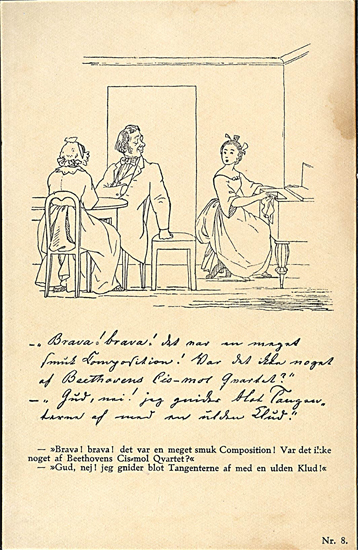 —„Brava! brava! det var en meget
smuk Composition! Var det ikke noget
af Beethovens Cis-mol Quartet?"
—„Gud, nei! jeg gnider blot Tangen-
terne af med en ulden Klud!"
— »Brava! brava! det var en meget smuk Composition! Var det ikke
noget af Beethovens Cis-mol Qvartet?«
— »Gud, nej! jeg gnider blot Tangenterne af med en ulden Klud!«
Nr. 8.